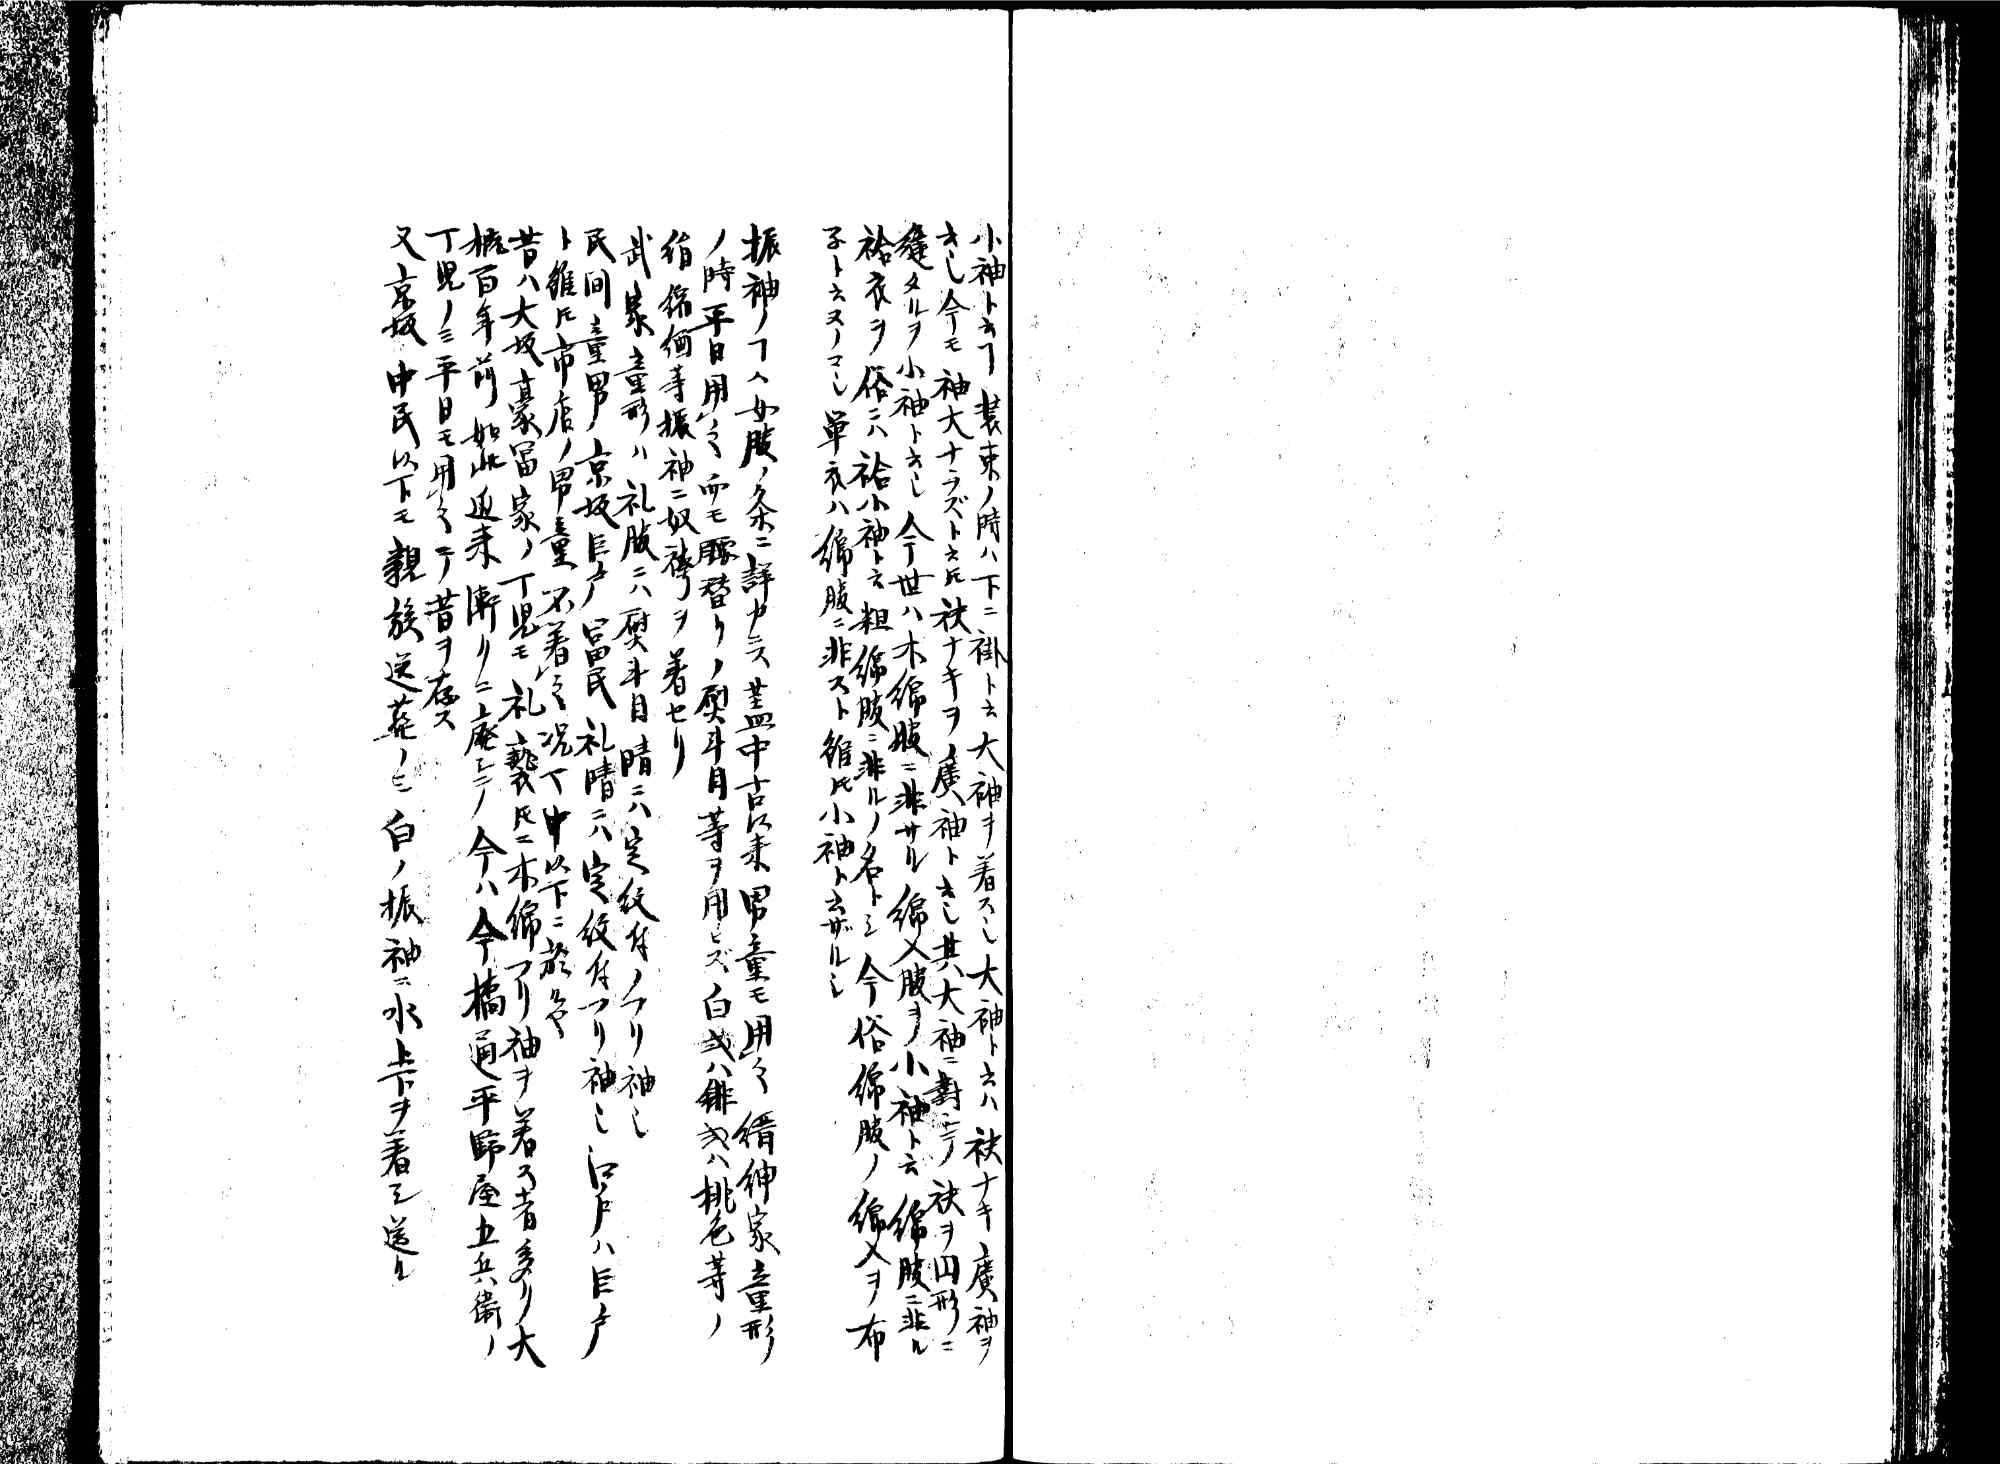 小袖ト云ヿ装束ノ時ハ下ニ褂ト云大袖ヲ着ス也大袖ト云ハ袂ナキ廣袖ヲ
云也今モ袖大ナラズト云ㇳモ袂ナキヲハ廣袖ト云也其大袖ニ對シテ袂ヲ円形ニ
縫タルヲ小袖ト云也今世ハ木綿服ニ非サル綿入服ヲ小袖ト云綿服ニ非ル
袷衣ヲ俗ニハ袷小袖ト云粗綿服ニ非ルノ名トシ今俗綿服ノ綿入ヲ布
子ト云又ノコ也単衣ハ綿服ニ非スト雖ㇳモ小袖ト云ザル也
振袖ノヿハ女服ノ条ニ詳カニス蓋中古以来男童モ用之縉紳家童形
ノ時平日用之而モ腰替リノ熨斗目等ヲ用ヒズ白或ハ緋或ハ桃色等ノ
絹縮緬等振袖ニ奴袴ヲ着セリ
武家童形ハ礼服ニハ熨斗目晴ニハ定紋付ノフリ袖也
民間童男ノ京坂巨戸ノ冨民礼晴ニハ定紋付フリ袖也江戸ハ巨戸
ト雖ㇳモ市店ノ男童不着之况ヤ中以下ニ於ヲヤ
昔ハ大坂豪冨家ノ丁児モ礼褻ㇳモニ木綿フリ袖ヲ着ス者多リ大
概百年前如此近来漸リニ廃シテ今ハ今橋通平野屋五兵衛ノ
丁児ノミ平日モ用之テ昔ヲ存ス
又京坂中民以下モ親族送葬ノヒ白ノ振袖ニ水上下ヲ着シ送ル